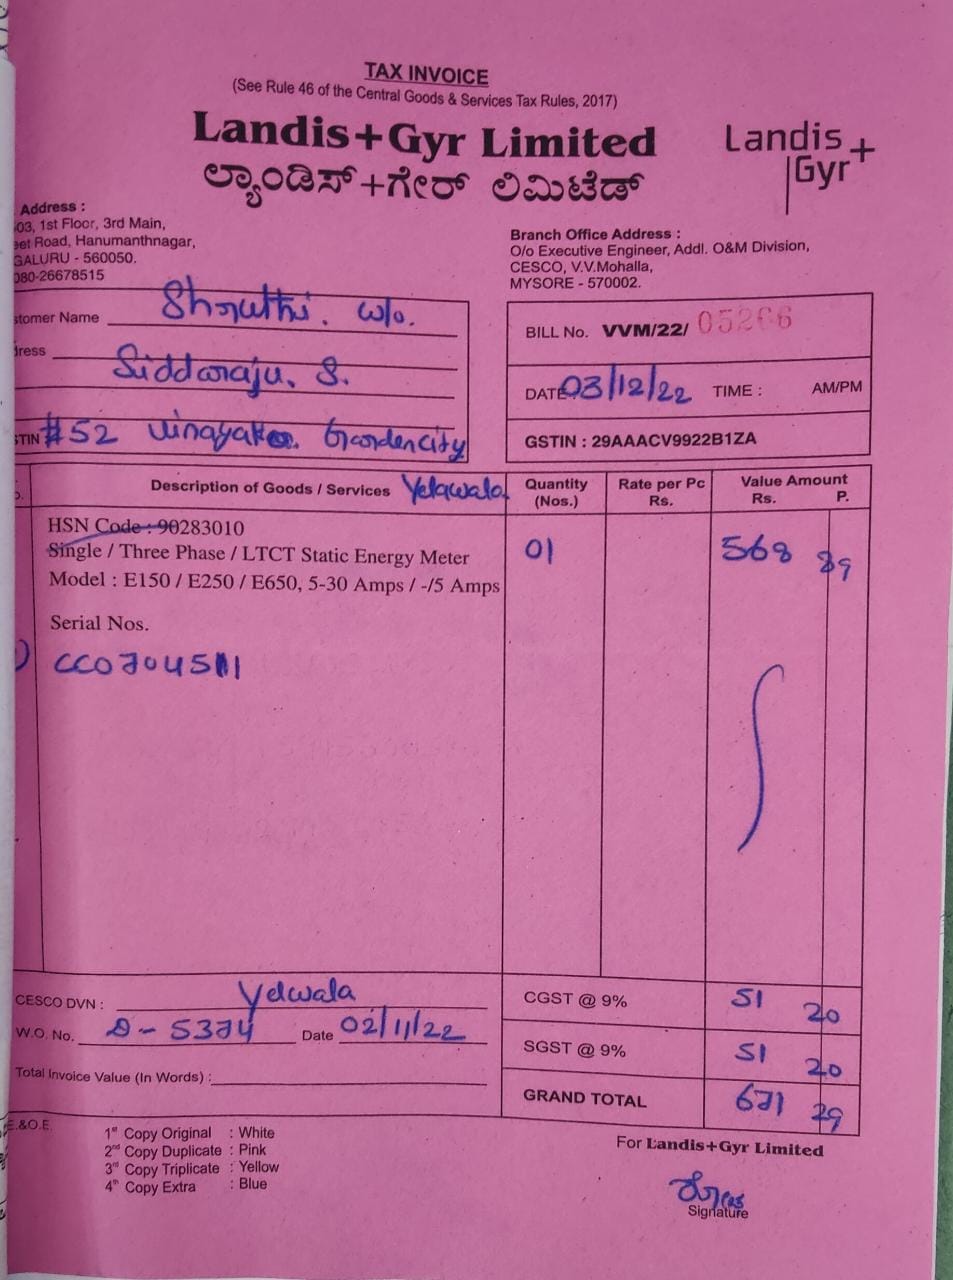 TAX INVOICE
(See Rule 46 of the Central Goods & Services Tax Rules, 2017)
Landis+Gyr Limited
ಲ್ಯಾಂಡಿಸ್+ಗೇರ್ ಲಿಮಿಟೆಡ್
Landis+
Gyr
Address :
03, 1st Floor, 3rd Main,
Road, Hanumanthnagar,
GALURU - 560050.
080-26678515
Branch Office Address :
O/o Executive Engineer, Addl. O&M Division,
CESCO, V.V.Mohalla,
MYSORE - 570002.
tomer Name Shruthi. w/o.
dress Siddaraju. S.
STIN #52 Vinayaka Gardencity
Yelawala
BILL No. VVM/22/ 05266
DATE 03/12/22 TIME : AM/PM
GSTIN : 29AAACV9922B1ZA
Description of Goods / Services Quantity (Nos.) Rate per Pc Rs. Value Amount Rs. P.
HSN Code : 90283010
Single / Three Phase / LTCT Static Energy Meter 01 568 89
Model : E150 / E250 / E650, 5-30 Amps / -/5 Amps
Serial Nos.
) CC0704511
CESCO DVN : Yelwala
W.O. No. D-5374 Date 02/11/22
Total Invoice Value (In Words) :
CGST @ 9% 51 20
SGST @ 9% 51 20
GRAND TOTAL 671 29
E.&O.E.
1st Copy Original : White
2nd Copy Duplicate : Pink
3rd Copy Triplicate : Yellow
4th Copy Extra : Blue
For Landis+Gyr Limited
Signature